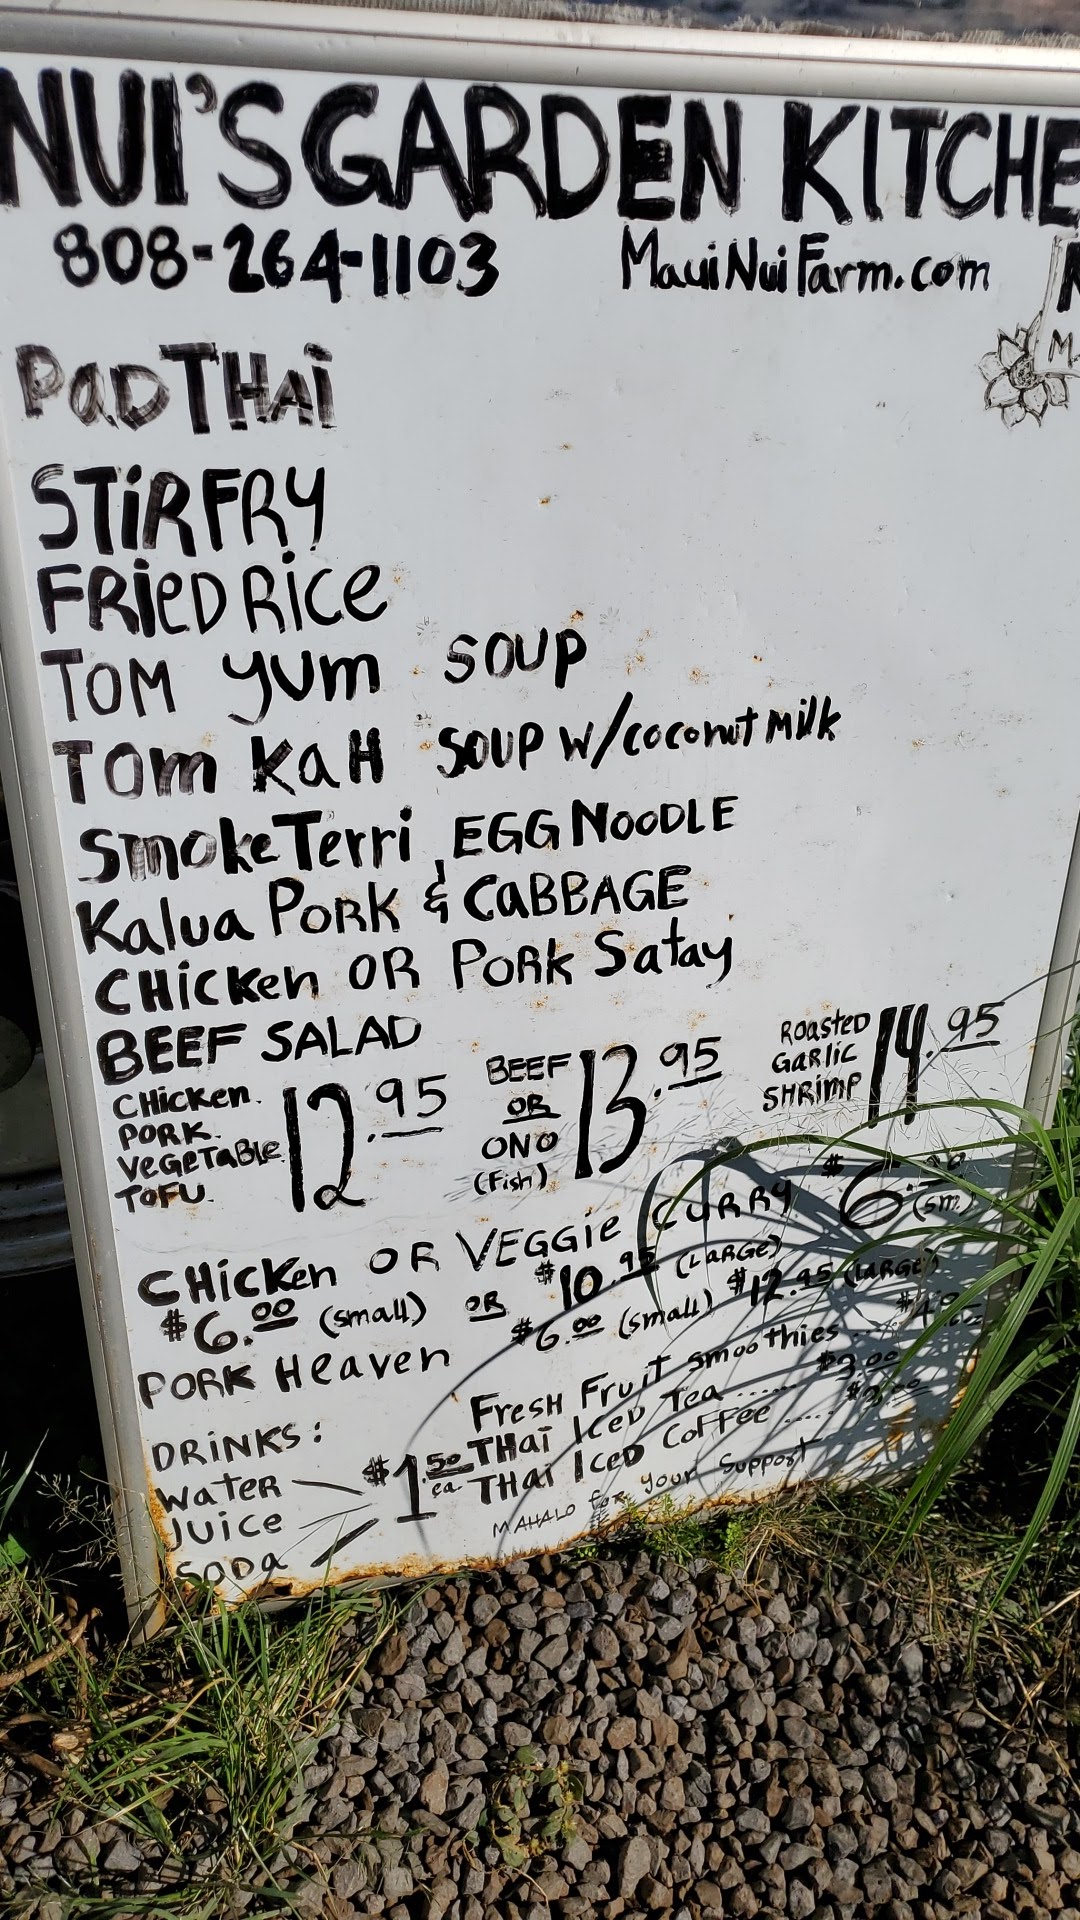 NUI'S GARDEN KITCHE
808-264-1103 MauiNuiFarm.com
PaD THai
STiR FRY
FRieD Rice
TOM yum SOUP
TOM KaH SOUP w/coconut Milk
Smoke Terri, EGG NOODLE
Kalua PORK & CABBAGE
CHicken OR PORK Satay
BEEF SALAD
CHicken PORK VeGeTaBLe TOFU 12.95
BEEF OR ONO (Fish) 13.95
ROasteD GaRLic SHRimp 14.95
CHicken OR VEGGie CURRY $6.00 (small) OR $10.95 (LaRGE)
PORK Heaven $6.00 (small) $12.95 (LaRGE)
(sm.)
DRiNKS:
WateR
JUice
SODa
$1.50 ea
FresH FRuiT smoothies
THai IceD Tea ...... $3.00
THai IceD CoFFee .....
MAHALO foR your Support